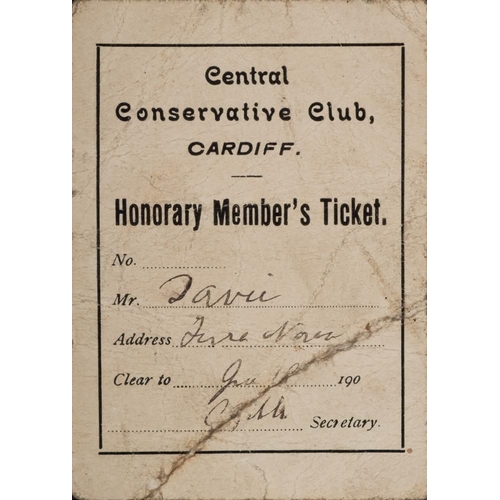 Central
Conservative Club,
CARDIFF.
Honorary Member's Ticket.
No.
Mr. Davie
Address Terra Nova
Clear to 190
Secretary.